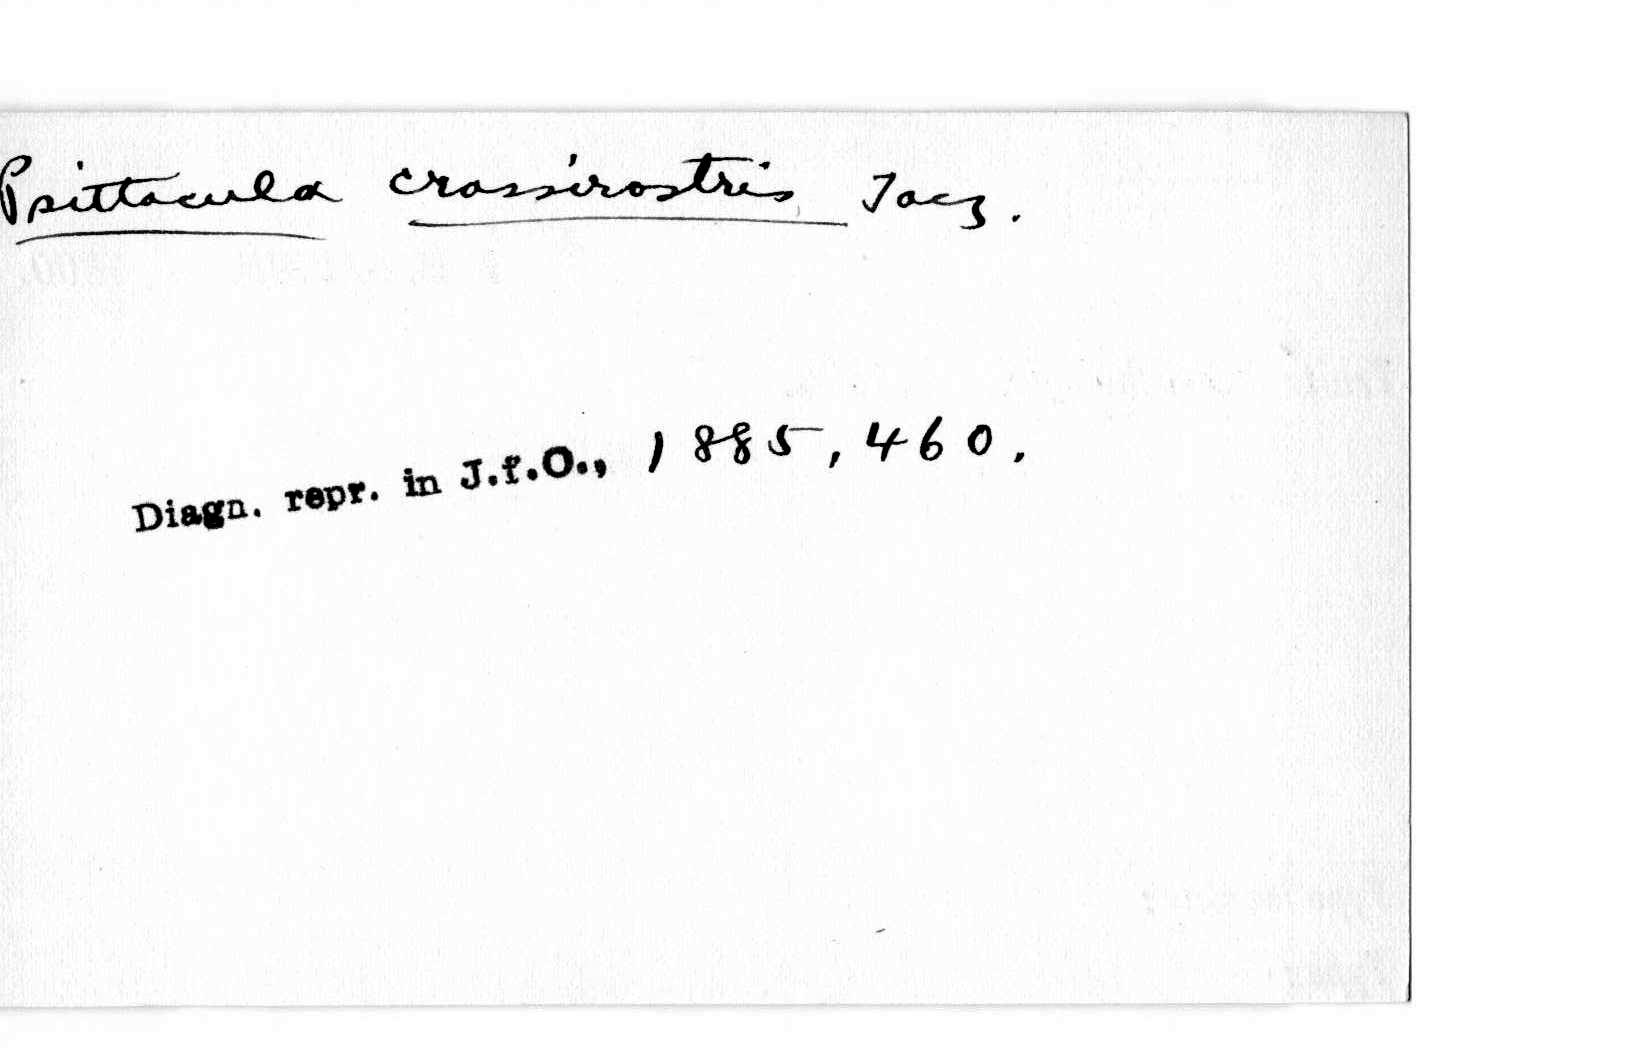 Psittacula crassirostris Tacz.
Diagn. repr. in J.f.O., 1885, 460.